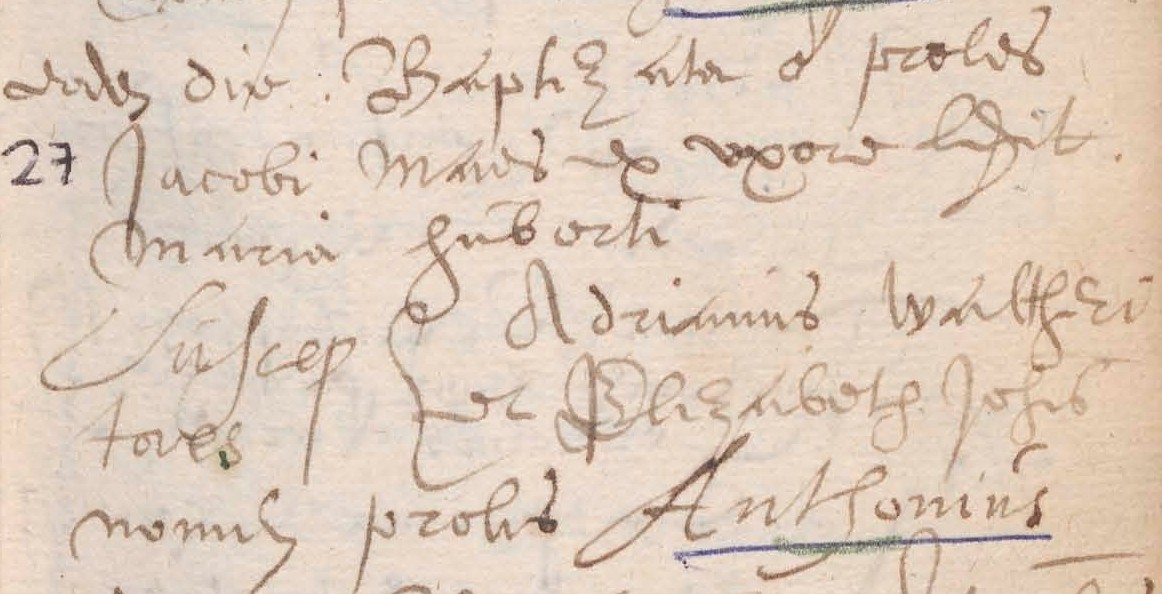 eodem die. Baptizata ẽ proles
27 Jacobi Maes ex uxore legit.
Maria huberti
Suscep Adrianus Waltheri
tores et Elizabeth Johis
nomen prolis Anthonius